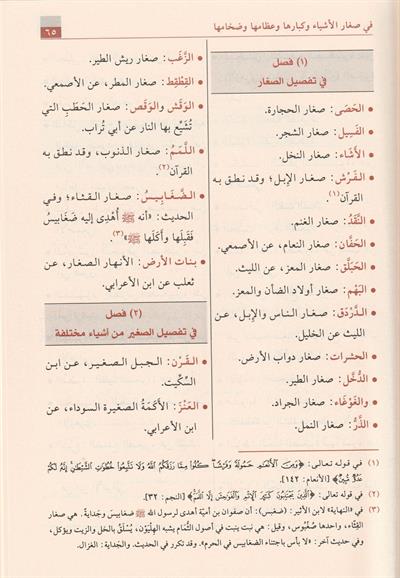 في صغار الأشياء وكبارها وعظامها وضخامها
٦٥
(١) فصل
في تفصيل الصغار
• الحَصَى: صغار الحجارة.
• الفَسِيل: صغار الشجر.
• الأَشَاء: صغار النخل.
• الفَرْش: صغار الإبل؛ وقد نطق به
القرآن(١).
• النَّقَدُ: صغار الغنم.
• الحَفَّان: صغار النعام، عن الأصمعي.
• الحَبَلَّق: صغار المعز، عن الليث.
• البَهْم: صغار أولاد الضأن والمعز.
• الدَّرْدَق: صغار الناس والإبل، عن
الليث عن الخليل.
• الحشرات: صغار دواب الأرض.
• الدُّخَّل: صغار الطير.
• والغَوْغَاء: صغار الجراد.
• الذَّرُّ: صغار النمل.
• الزَّغَب: صغار ريش الطير.
• القِطْقِط: صغار المطر، عن الأصمعي.
• الوَقَش والوَقَص: صغار الحَطَبِ التي
تُشَيَّع بها النار عن أبي تُراب.
• اللَّمَمُ: صغار الذنوب، وقد نطق به
القرآن(٢).
• الضَّغَابِيسُ: صغار القثاء؛ وفي
الحديث: «أنه ﷺ أُهْدِيَ إليه ضَغَابِيسُ
فَقَبِلَها وأكَلَها ﷺ»(٣).
• بنات الأرض: الأنهار الصغار، عن
ثعلب عن ابن الأعرابي.
(٢) فصل
في تفصيل الصغير من أشياء مختلفة
• القَرْن: الجبل الصغير، عن ابن
السِّكِّيت.
• العَنْز: الأكَمَةُ الصغيرة السوداء، عن
ابن الأعرابي.
(١) في قوله تعالى: ﴿وَمِنَ ٱلْأَنْعَٰمِ حَمُولَةً وَفَرْشًا كُلُوا۟ مِمَّا رَزَقَكُمُ ٱللَّهُ وَلَا تَتَّبِعُوا۟ خُطُوَٰتِ ٱلشَّيْطَٰنِ إِنَّهُۥ لَكُمْ
عَدُوٌّ مُّبِينٌ﴾ [الأنعام: ١٤٢].
(٢) في قوله تعالى: ﴿ٱلَّذِينَ يَجْتَنِبُونَ كَبَٰٓئِرَ ٱلْإِثْمِ وَٱلْفَوَٰحِشَ إِلَّا ٱللَّمَمَ﴾ [النجم: ٣٢].
(٣) في «النهاية» لابن الأثير: (ضغبس): أن صفوان بن أمية أهدى لرسول الله ﷺ ضغابيسَ وجَدايةً. هي صغار
القِثّاء، واحدها ضُغْبُوس، وقيل: هي نبت ينبت في أصول الثُّمام يشبه الهِلْيَوْن، يُسْلَقُ بالخل والزيت ويؤكل،
وفي حديث آخر: «لا بأس باجتناء الضغابيس في الحرم». وقد تكرر في الحديث. والجَداية: الغزال.